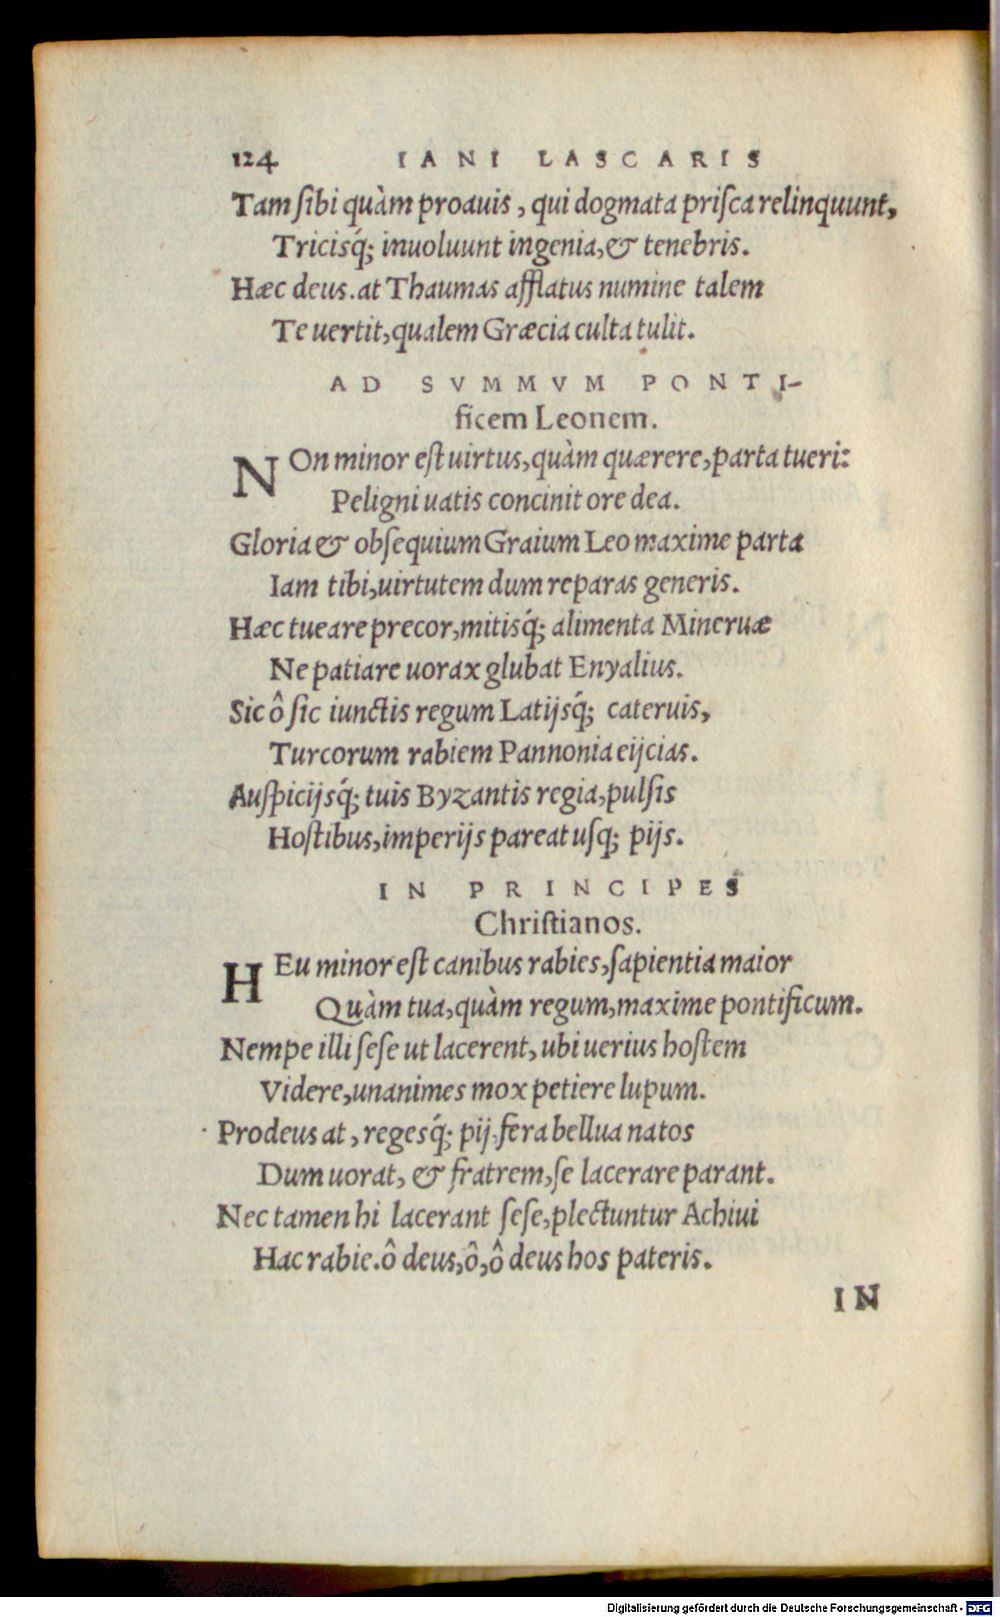 124 IANI LASCARIS
Tam ſibi quàm proauis, qui dogmata priſca relinquunt,
Tricisq́; inuoluunt ingenia,& tenebris.
Hæc deus.at Thaumas afflatus numine talem
Te uertit,qualem Græcia culta tulit.
AD SVMMVM PONTI-
ficem Leonem.
NOn minor eſt uirtus,quàm quærere,parta tueri:
Peligni uatis concinit ore dea.
Gloria & obſequium Graium Leo maxime parta
Iam tibi,uirtutem dum reparas generis.
Hæc tueare precor,mitisq́; alimenta Mineruæ
Ne patiare uorax glubat Enyalius.
Sic ô ſic iunctis regum Latijsq́; cateruis,
Turcorum rabiem Pannonia eijcias.
Auſpicijsq́; tuis Byzantis regia,pulſis
Hoſtibus,imperijs pareat uſq; pijs.
IN PRINCIPES
Chriſtianos.
HEu minor eſt canibus rabies,ſapientia maior
Quàm tua,quàm regum,maxime pontificum.
Nempe illi ſeſe ut lacerent,ubi uerius hoſtem
Videre,unanimes mox petiere lupum.
Prodeus at, regesq́; pij.fera bellua natos
Dum uorat, & fratrem,ſe lacerare parant.
Nec tamen hi lacerant ſeſe,plectuntur Achiui
Hac rabie.ô deus,ô,ô deus hos pateris.
IN
Digitalisierung gefördert durch die Deutsche Forschungsgemeinschaft - DFG